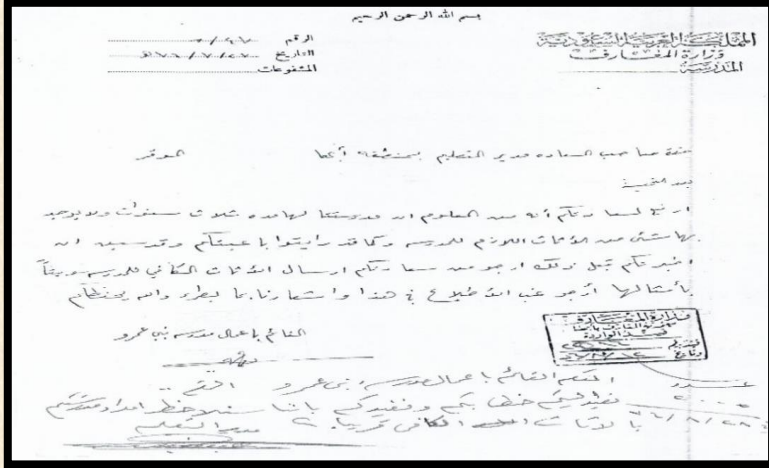 بسم الله الرحمن الرحيم
المملكة العربية السعودية
وزارة المعارف
المدرسة
الرقم ٢٩٧
التاريخ ٢٧ / ٧ / ٧٦ هـ
المشفوعات
صاحب السعادة مدير التعليم بمنطقة أبها الموقر
بعد التحية
ارفع لسعادتكم أنه من المعلوم ان مدرستنا لها مده ثلاث سنوات ولا يوجد
بها شئ من الأثاث اللازم للمدرسه وكما قد رايتوا با عينكم وقد سبق ان
اخبرتكم قبل ذلك ارجو من سعادتكم ارسال الأثاث الكافي للمدرسه
بأمثالها ارجو عند الاطلاع في هذا واشعارنا بما يطرى والله يحفظكم
القائم باعمال مدرسه بني عمرو
وزارة المعارف
المكرم القائم باعمال مدرسة بني عمرو
خطابكم ونفيدكم باننا سنلاحظ امداد مدرستكم
بالاثاث الكافى قريبا مدير التعليم